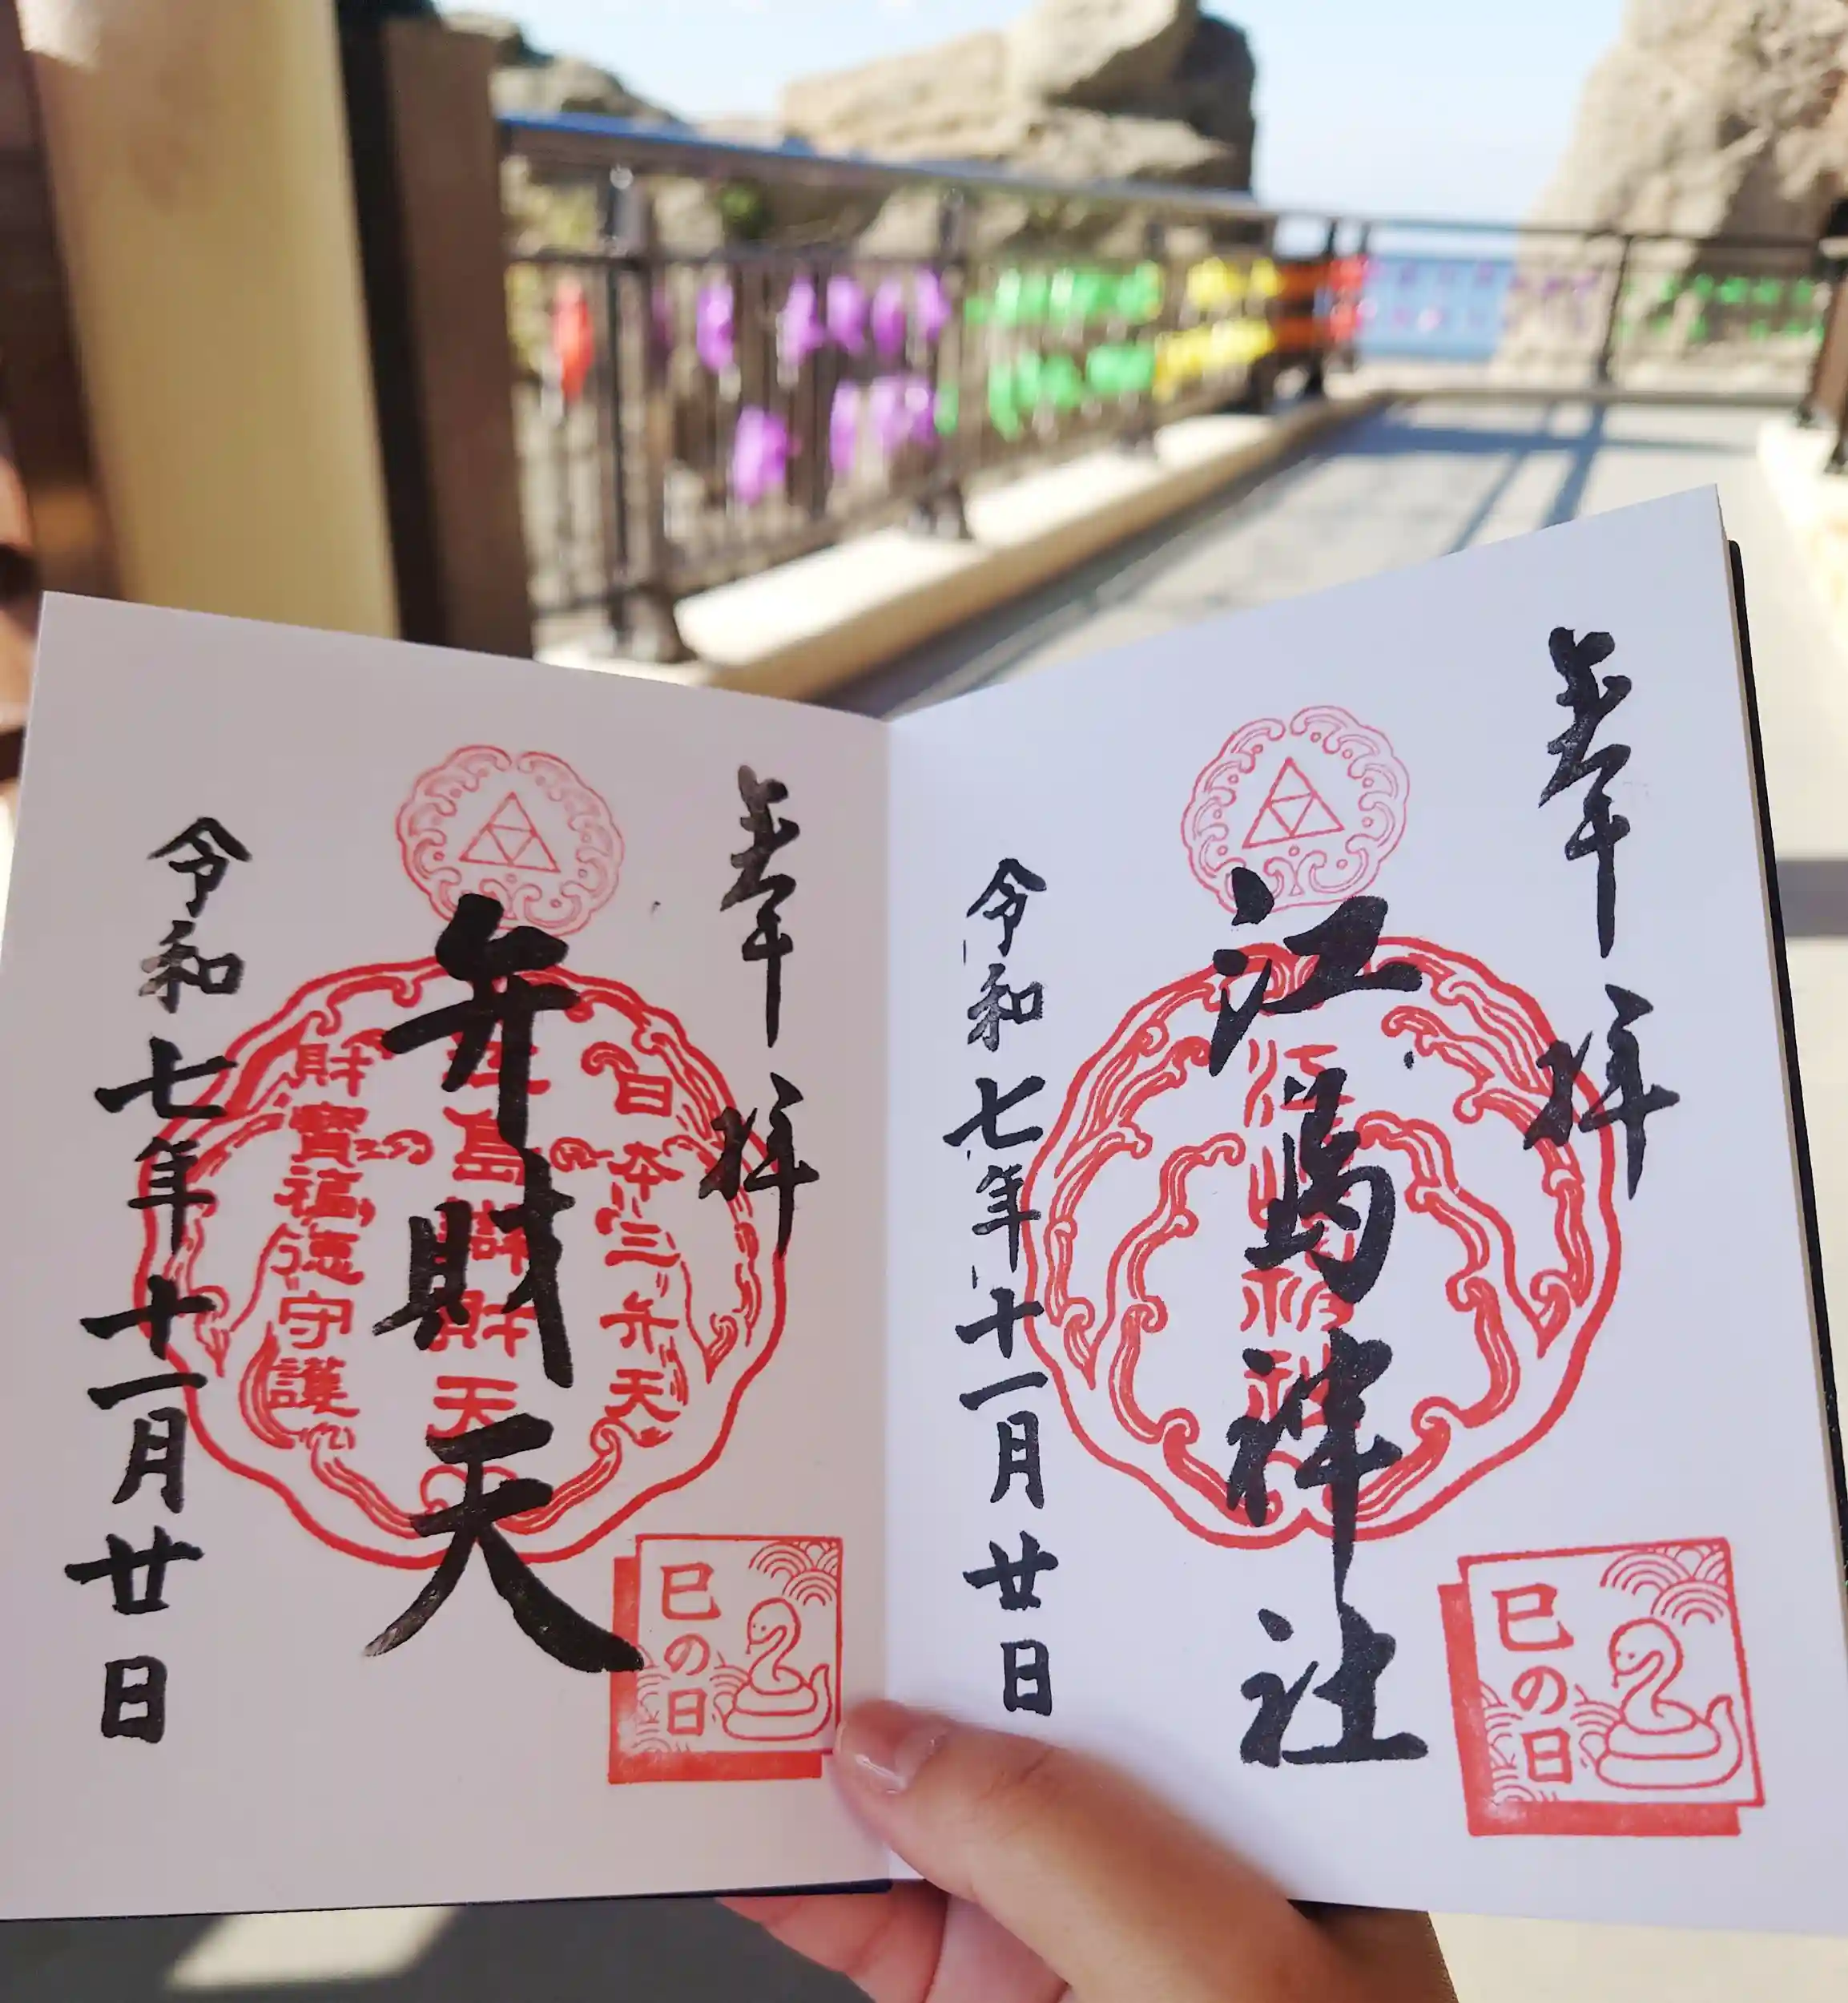 奉拝
江島神社
江島神社
巳の日
令和七年十一月廿日
奉拝
日本三弁天
弁財天
江島辯財天
財寶福徳守護
巳の日
令和七年十一月廿日